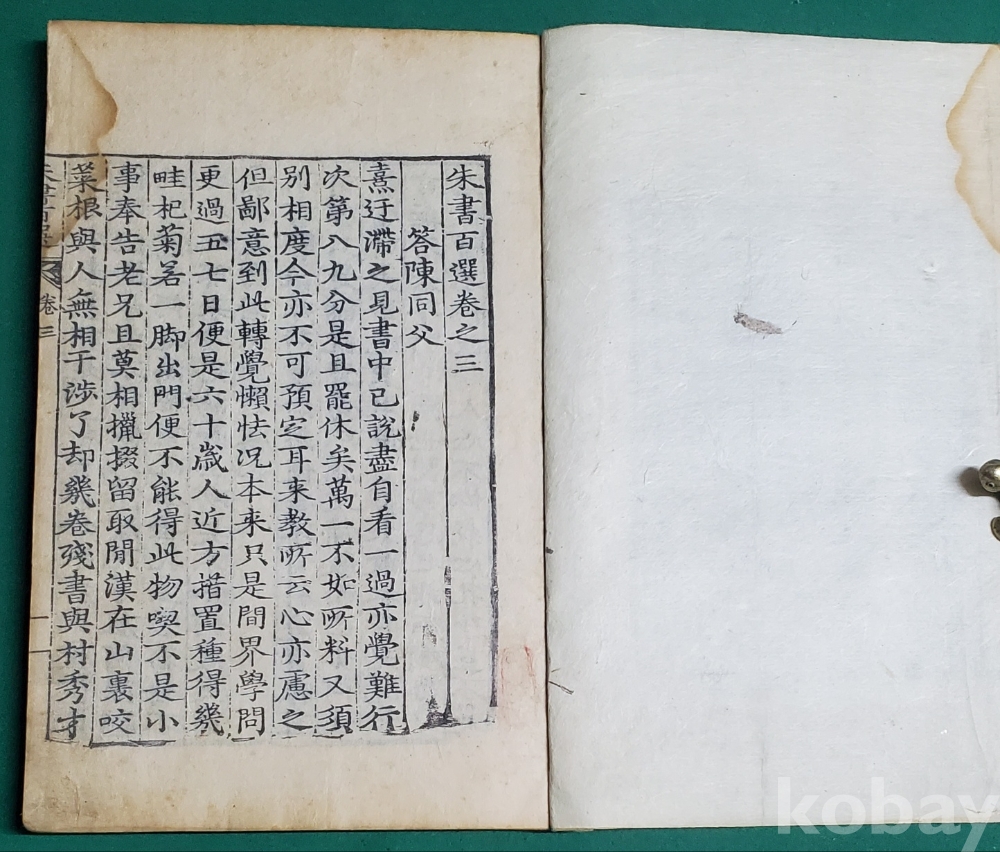 朱書百選卷之三
答陳同父
熹迂滯之見書中已說盡自看一過亦覺難行
次第八九分是且罷休矣萬一不如所料又須
別相度今亦不可預定耳来教所云心亦慮之
但鄙意到此轉覺懶怯况本来只是間界學問
更過五七日便是六十歲人近方措置種得幾
畦杞菊若一脚出門便不能得此物喫不是小
事奉告老兄且莫相攛掇留取閒漢在山裏咬
菜根與人無相干涉了却幾卷殘書與村秀才
朱書百選
卷三
kobay